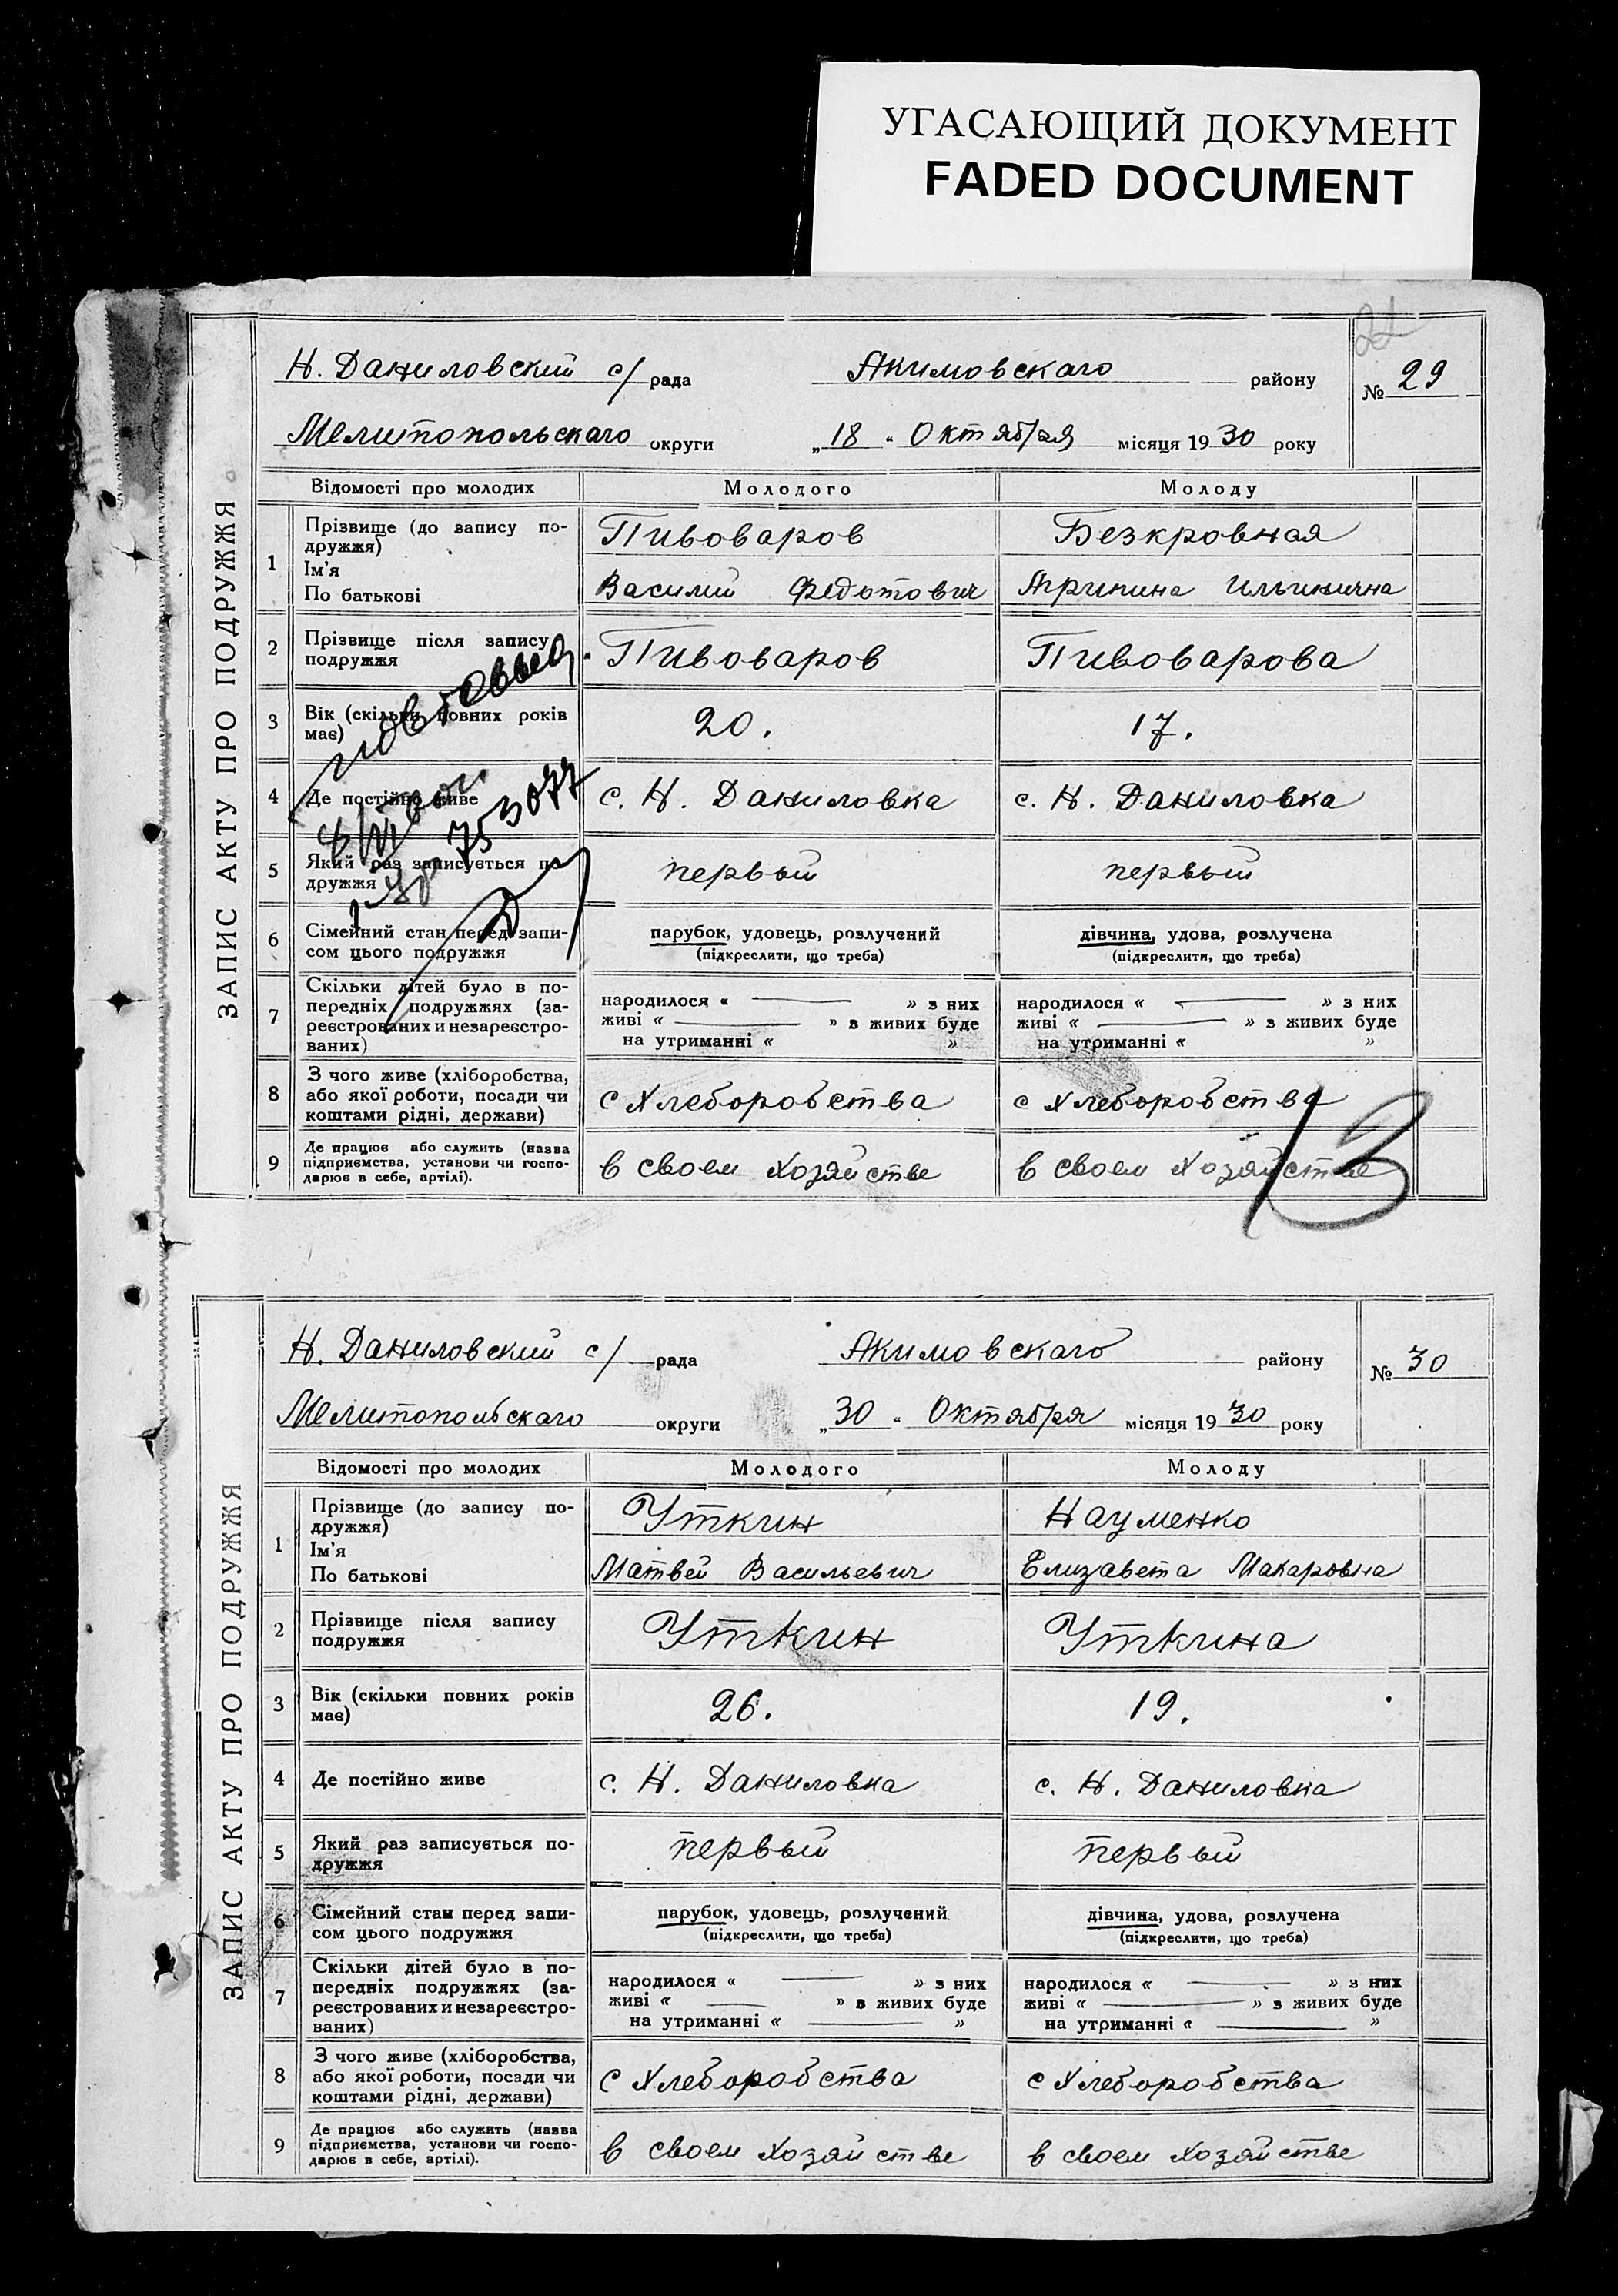 УГАСАЮЩИЙ ДОКУМЕНТ
FADED DOCUMENT
ЗАПИС АКТУ ПРО ПОДРУЖЖЯ
Н. Даниловский с/ рада Акимовскаго району № 29
Мелитопольскаго округи „18“ Октября місяця 1930 року
Відомості про молодих Молодого Молоду
1 Прізвище (до запису по-
дружжя) Пивоваров Безкровная
Ім'я
По батькові Василий Федотович Агрипина Ильинична
2 Прізвище після запису
подружжя Пивоваров Пивоварова
3 Вік (скільки повних років
має) 20. 17.
4 Де постійно живе с. Н. Даниловка с. Н. Даниловка
5 Який раз записується по-
дружжя первый первый
6 Сімейний стан перед запи-
сом цього подружжя
парубок, удовець, розлучений
(підкреслити, що треба)
дівчина, удова, розлучена
(підкреслити, що треба)
7 Скільки дітей було в по-
передніх подружжях (за-
реєстрованих и незареєстро-
ваних)
народилося « » з них
живі « » з живих буде
на утриманні « »
народилося « » з них
живі « » з живих буде
на утриманні « »
8 З чого живе (хліборобства,
або якої роботи, посади чи
коштами рідні, держави)
с хлеборобства с хлеборобства
9 Де працює або служить (назва
підприємства, установи чи госпо-
дарює в себе, артілі).
в своем хозяйстве в своем хозяйстве
13
ЗАПИС АКТУ ПРО ПОДРУЖЖЯ
Н. Даниловский с/ рада Акимовскаго району № 30
Мелитопольскаго округи „30“ Октября місяця 1930 року
Відомості про молодих Молодого Молоду
1 Прізвище (до запису по-
дружжя) Уткин Науменко
Ім'я
По батькові Матвей Васильевич Елизавета Макаровна
2 Прізвище після запису
подружжя Уткин Уткина
3 Вік (скільки повних років
має) 26. 19.
4 Де постійно живе с. Н. Даниловка с. Н. Даниловка
5 Який раз записується по-
дружжя первый первый
6 Сімейний стан перед запи-
сом цього подружжя
парубок, удовець, розлучений
(підкреслити, що треба)
дівчина, удова, розлучена
(підкреслити, що треба)
7 Скільки дітей було в по-
передніх подружжях (за-
реєстрованих и незареєстро-
ваних)
народилося « » з них
живі « » з живих буде
на утриманні « »
народилося « » з них
живі « » з живих буде
на утриманні « »
8 З чого живе (хліборобства,
або якої роботи, посади чи
коштами рідні, держави)
с хлеборобства с хлеборобства
9 Де працює або служить (назва
підприємства, установи чи госпо-
дарює в себе, артілі).
в своем хозяйстве в своем хозяйстве